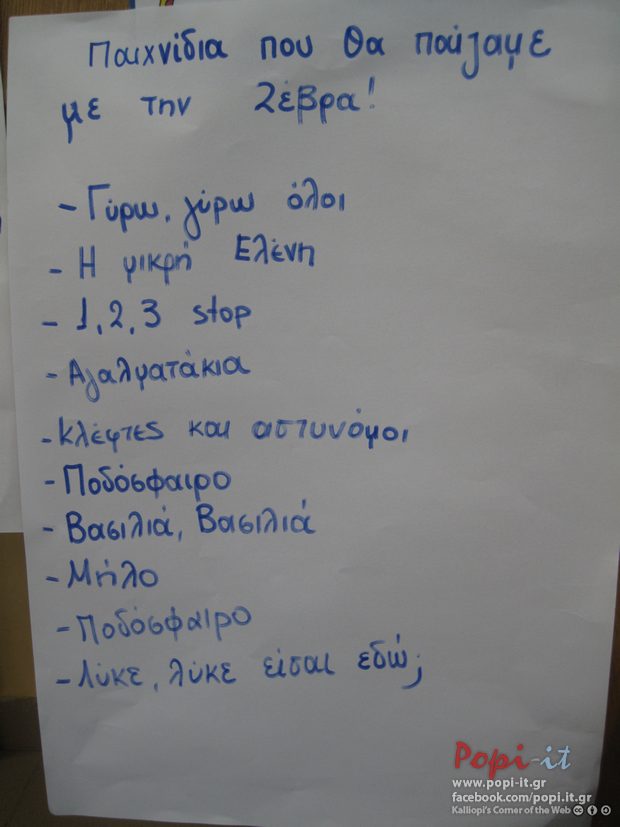 Παιχνίδια που θα παίζαμε
με την Ζέβρα!
- Γύρω, γύρω όλοι
- Η μικρή Ελένη
- 1, 2, 3 stop
- Αγαλματάκια
- κλέφτες και αστυνόμοι
- Ποδόσφαιρο
- Βασιλιά, Βασιλιά
- Μήλο
- Ποδόσφαιρο
- Λύκε, λύκε είσαι εδώ;
Popi-it
www.popi-it.gr
facebook.com/popi.it.gr
Kalliopi's Corner of the Web